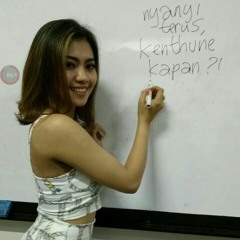 nyanyi
terus,
kenthune
kapan ?!